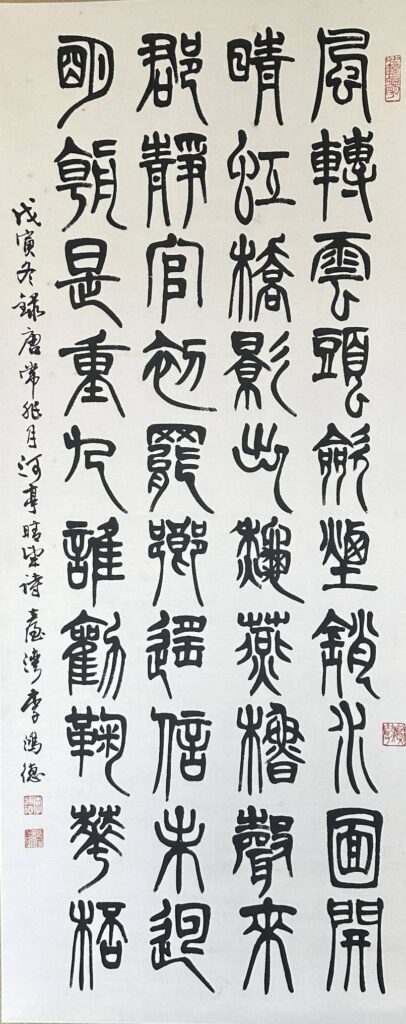 風轉雲頭斂煙銷水面開
晴虹橋影出龝燕櫓聲來
郡靜官初罷鄉遙信未迴
明朝是重九誰勸鞠華桮
戊寅冬錄唐常非月河亭晴望詩臺灣李鴻德